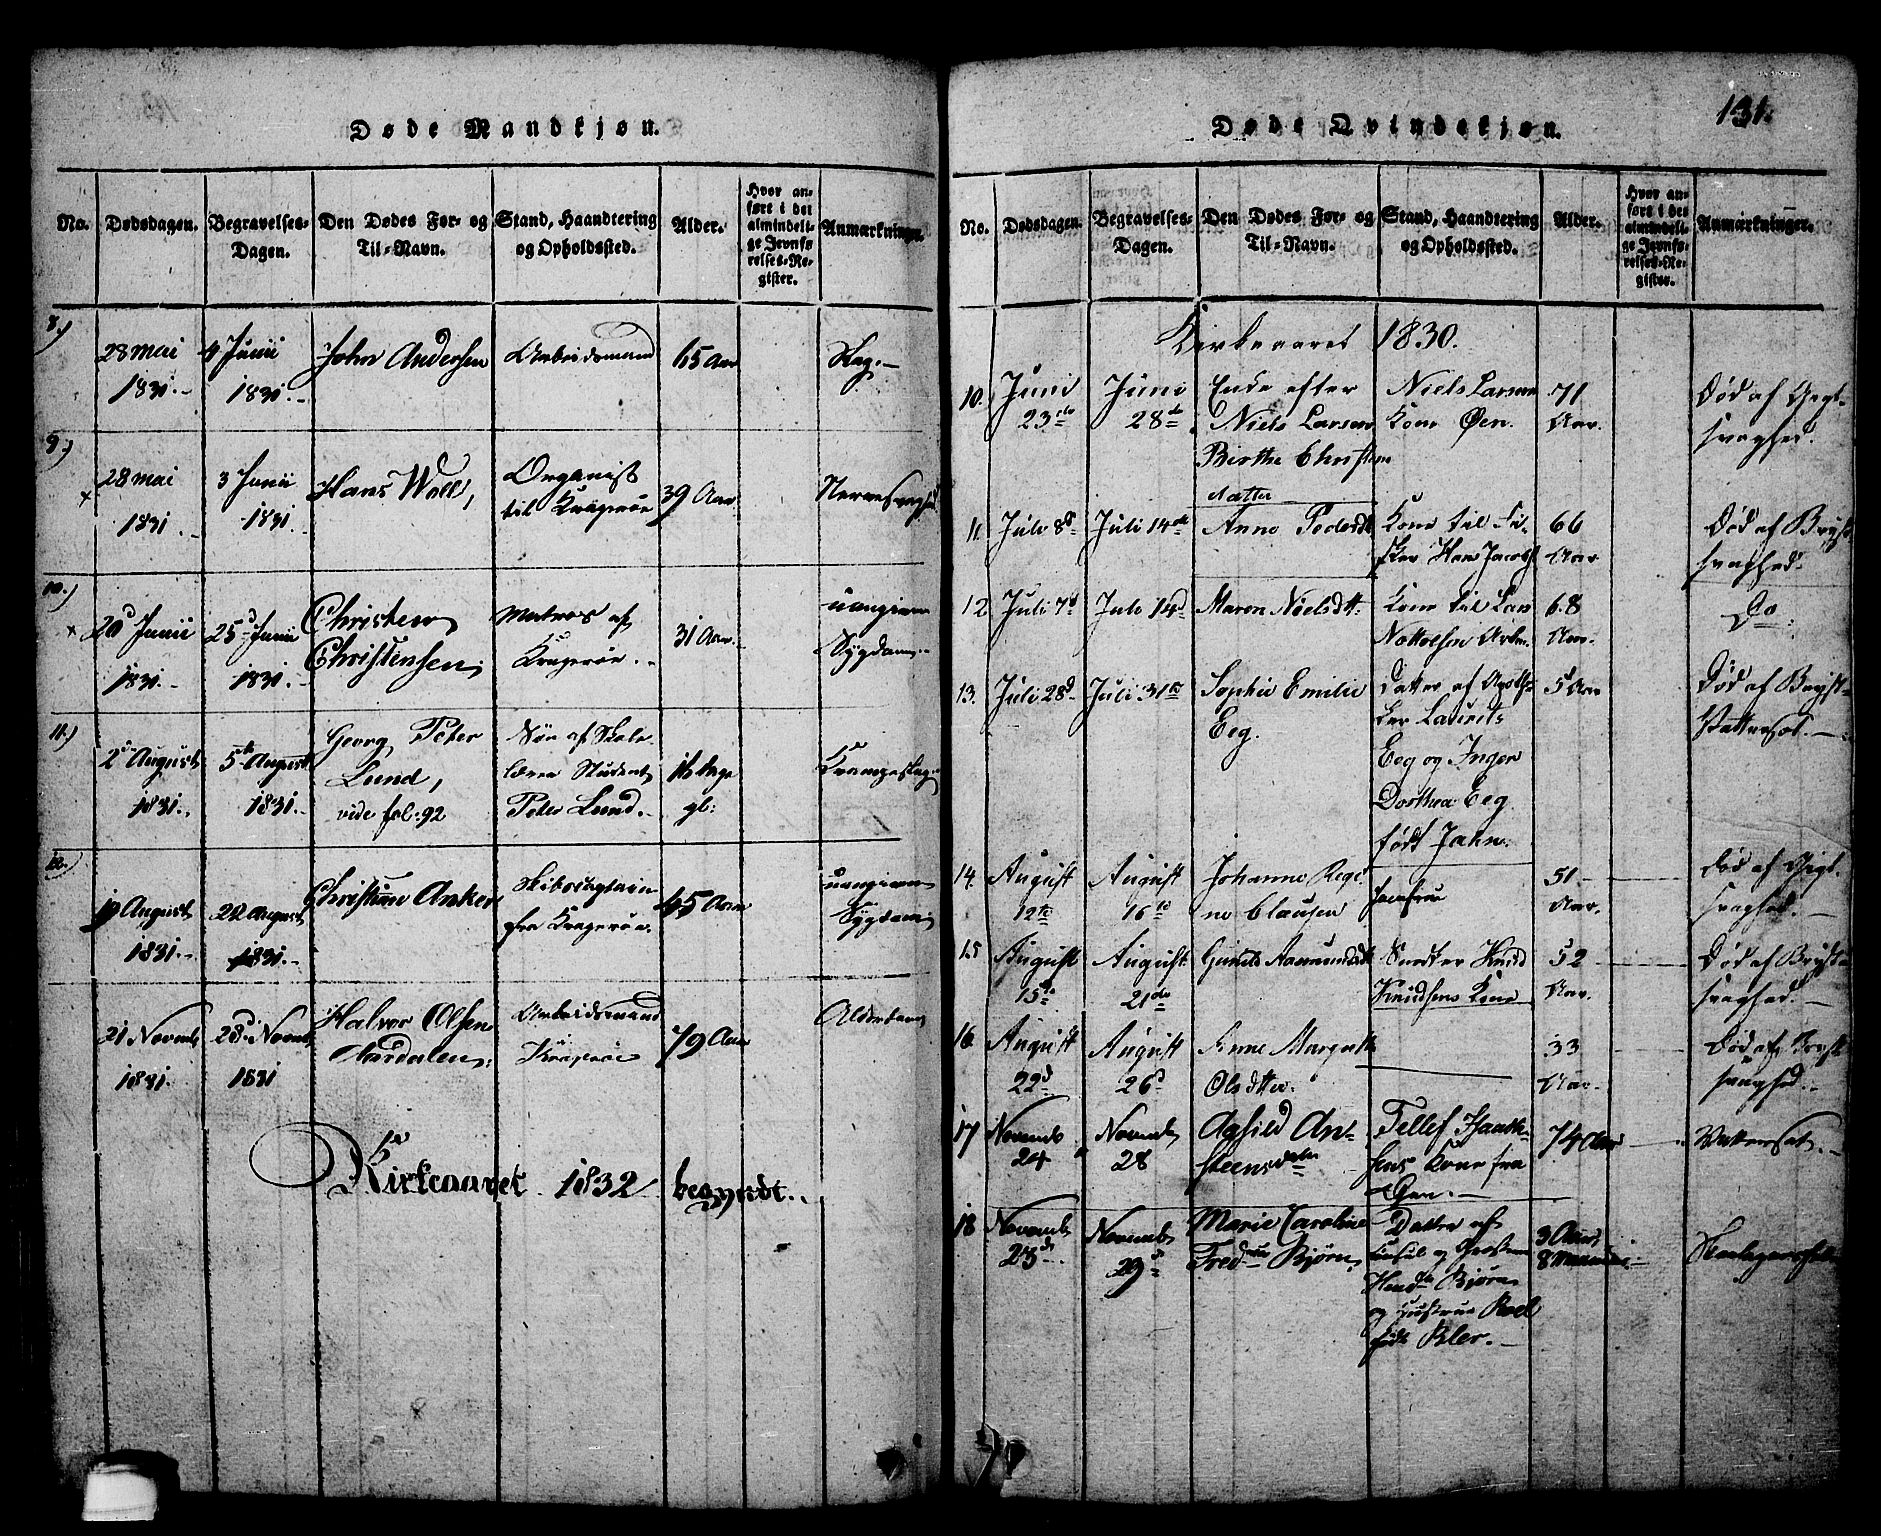 Døde Mandkjøn.
No.
Dødsdagen.
Begravelses-
Dagen.
Den Dødes For- og
Til-Navn.
Stand, Haandtering
og Opholdssted.
Alder.
Hvor an-
ført i det
almindeli-
ge Jevnfø-
relses-Re-
gister.
Anmærkninger.
8.)
28 Mai
1831.-
4 Junii
1831.-
John Andersen
Arbeidsmand
65 Aar
Slag.-
9.)
28 Mai
1831.
3 Junii
1831.
Hans Woll,
Organist
til Kragerøe
39 Aar
Nervesvaghed
10.)
20d Junii
1831.-
25d Junii
1831.-
Christen
Christensen,
Matros af
Kragerøe.-
31 Aar
uangiven
Sygdom.-
11.)
2den August
1831.
5te August
1831.-
Georg Peter
Lund,
vide fol: 92
Søn af Skole-
lærer Student
Peter Lund.-
16 Dage
gl:
Krampeslag
12.)
19 August
1831.-
22 August
1831.-
Christian Anker
Skibscaptain
fra Kragerøe.
45 Aar
uangiven
Sygdom
21 Novemb
1831.
28 Novemb
1831
Halvor Olsen
Aardalen.
Arbeidsmand
Kragerøe
79 Aar
Alderdom
Kirkeaaret 1832 begyndt.
131.
Døde Qvindekjøn.
No.
Dødsdagen.
Begravelses-
Dagen.
Den Dødes For- og
Til-Navn.
Stand, Haandtering
og Opholdssted.
Alder.
Hvor an-
ført i det
almindeli-
ge Jevnfø-
relses-Re-
gister.
Anmærkninger.
Kirkeaaret 1830.
10.
Juni
23de
Juni
28de
Enke efter
Niels Larsen
Birthe Christen
datter
Niels Larsen
Kone Øen.
71
Aar.
Død af Gigt-
svaghed.
11.
Juli 8d
Juli 14de
Anne Pedersdt
Kone til Fi-
sker Hans Jacobs
66
Aar
Død af Bryst
svaghed.
12
Juli 7d
Juli 14d
Maren Nielsdtt.
Kone til Lars
68
Aar.
Do
13.
Juli 28d
Juli 31te
Sophie Emilie
Eeg.
Datter af Apothe-
ker Laurits
Eeg og Inger
Dorthea Eeg
født Jahn.
5 Aar
Død af Bryst-
Vattersot.-
14.
August
12te
August
16te
Johanne Regi-
ne Clausen
Jomfrue
51
Aar.
Død af Gigt-
svaghed.-
15
August
15de
August
21de
Gunild Aamundsdt
Knudsens Kone
52
Aar.
Død af Bryst-
svaghed.-
16.
August
22d
August
26d
Anne Margrethe
Olsdtter.
33
Aar.
Død af Bryst
svaghed.-
17
Novemb
24
Novemb
28
Aasild An-
steensdatter
Tellef Hauk-
sens Kone fra
Øen.-
74 Aar
Vattersot.-
18
Novemb
23d.
Novemb
29d
Marie Caroline
Bjørn
Datter af
Consul og
Bjørn
og Hustrue
født Bler.-
3 Aar
8 Maaneder
Skarlagensfeber